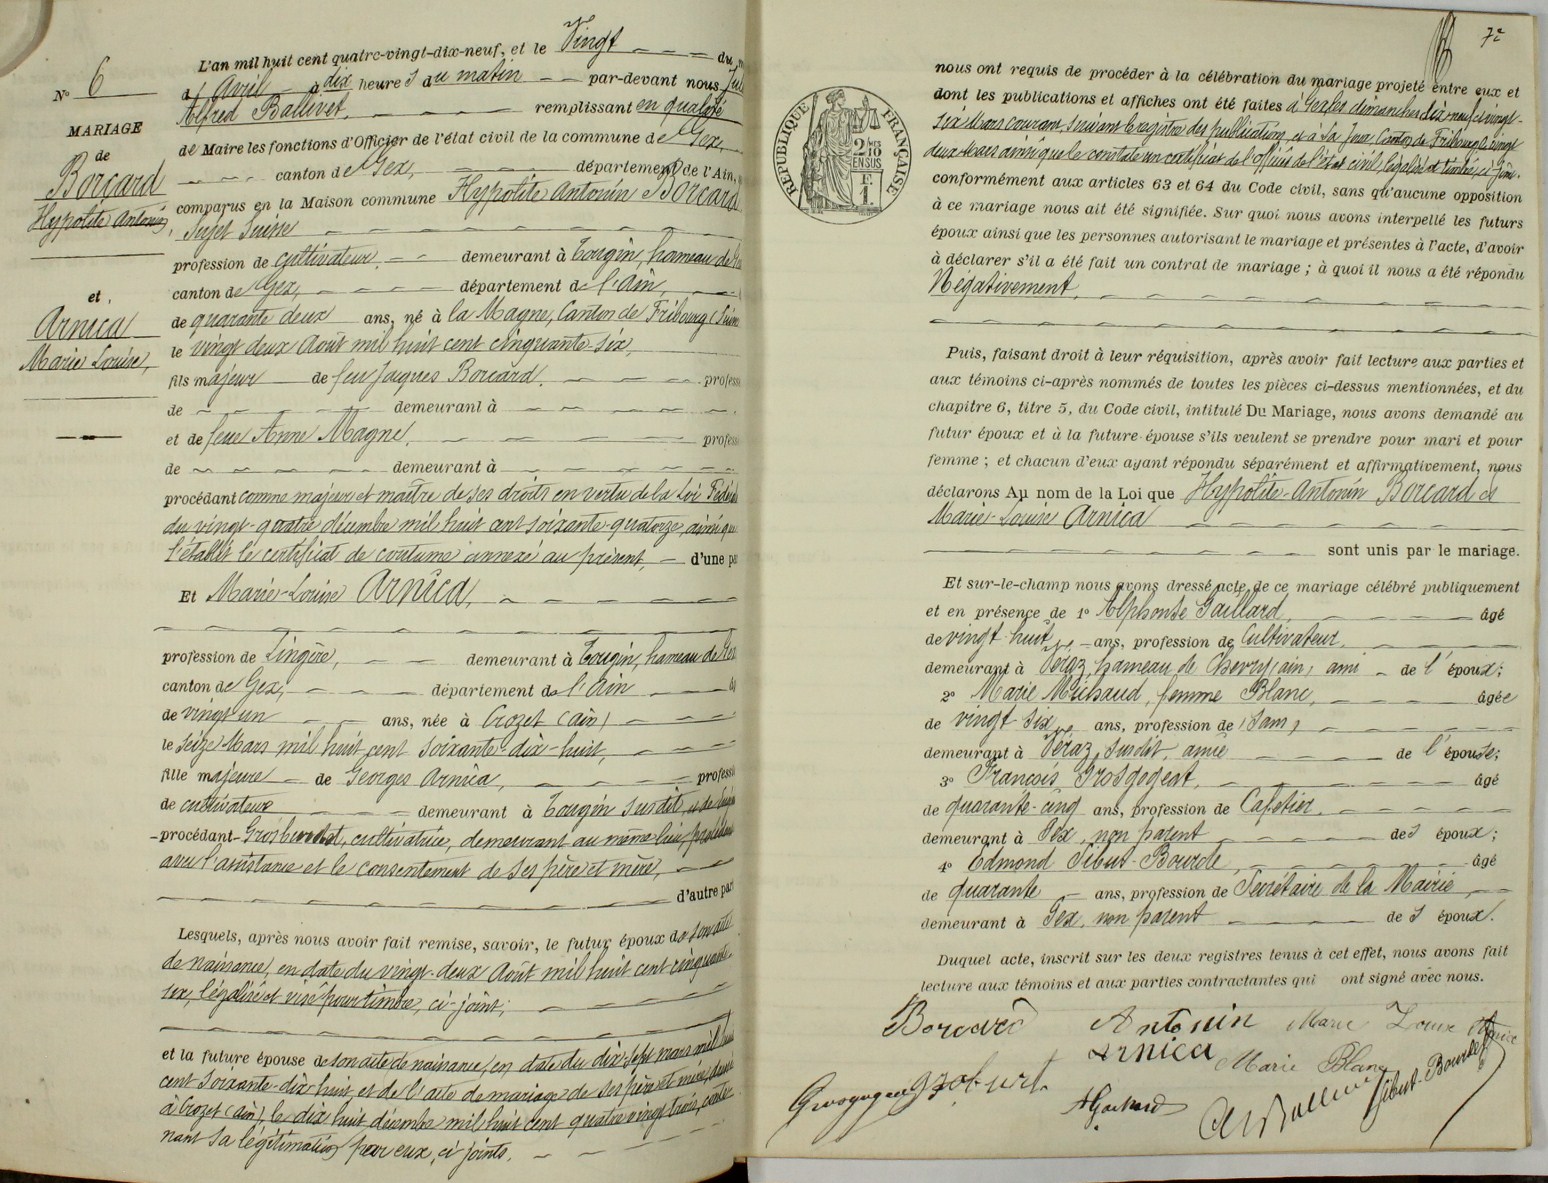 N° 6
MARIAGE
de
Borcard
Hypolite Antonin,
et
Arnica
Marie Louise,
L'an mil huit cent quatre-vingt-dix-neuf, et le Vingt du
d'Avril à dix heures du matin par-devant nous
Alfred Ballivet, remplissant en qualité
de Maire les fonctions d'Officier de l'état civil de la commune de Gex,
canton de Gex, département de l'Ain,
comparus en la Maison commune Hypolite Antonin Borcard
Sujet Suisse
profession de cultivateur, demeurant à Tougin, hameau de
canton de Gex, département de l'Ain,
de quarante deux ans, né à la Magne, Canton de Fribourg (Suisse
le vingt deux Août mil huit cent cinquante-six,
fils majeur de feu Jacques Borcard, profess
de demeurant à
et de feue Anne Magne, profess
de demeurant à
procédant comme majeur et maître de ses droits en vertu de la Loi Fédér
du vingt-quatre décembre mil huit cent soixante-quatorze, ainsi que
l'établit le certificat de coutume annexé au présent, d'une pa
Et Marie-Louise Arnica,
profession de Lingère, demeurant à Tougin, hameau de Gex
canton de Gex, département de l'Ain
de vingt un ans, née à Crozet (Ain)
le seize Mars mil huit cent soixante-dix-huit,
fille majeure de Georges Arnica, professi
de cultivateur demeurant à Tougin susdit, et de
procédant cultivatrice, demeurant au même lieu, procédant
avec l'assistance et le consentement de ses père et mère,
d'autre par
Lesquels, après nous avoir fait remise, savoir, le futur époux de son acte
de naissance, en date du vingt-deux Août mil huit cent cinquante-
six, légalisé et visé pour timbre, ci-joint;
et la future épouse de son acte de naissance, en date du dix-sept mars mil huit
cent soixante-dix-huit et de l'acte de mariage de ses père et mère, dressé
à Crozet (Ain), le dix huit décembre mil huit cent quatre vingt trois, conte-
nant sa légitimation par eux, ci joints.
72
RÉPUBLIQUE FRANÇAISE
2/10 EN SUS
F. 1.
nous ont requis de procéder à la célébration du mariage projeté entre eux et
dont les publications et affiches ont été faites à Gex les dimanches dix-neuf et vingt-
six Mars courant, suivant le registre des publications et à la Canton de Fribourg le vingt
deux Mars ainsi que le constate un certificat de l'officier de l'état civil, légalisé et timbré, ci joint.
conformément aux articles 63 et 64 du Code civil, sans qu'aucune opposition
à ce mariage nous ait été signifiée. Sur quoi nous avons interpellé les futurs
époux ainsi que les personnes autorisant le mariage et présentes à l'acte, d'avoir
à déclarer s'il a été fait un contrat de mariage ; à quoi il nous a été répondu
Négativement,
Puis, faisant droit à leur réquisition, après avoir fait lecture aux parties et
aux témoins ci-après nommés de toutes les pièces ci-dessus mentionnées, et du
chapitre 6, titre 5, du Code civil, intitulé Du Mariage, nous avons demandé au
futur époux et à la future épouse s'ils veulent se prendre pour mari et pour
femme ; et chacun d'eux ayant répondu séparément et affirmativement, nous
déclarons Au nom de la Loi que Hypolite-Antonin Borcard et
Marie-Louise Arnica
sont unis par le mariage.
Et sur-le-champ nous avons dressé acte de ce mariage célébré publiquement
et en présence de 1° Alphonse Gaillard, âgé
de vingt huit ans, profession de Cultivateur,
demeurant à Véraz, hameau de Chevry (Ain) ami de l'époux;
2° Marie Michaud, femme Blanc, âgée
de vingt six ans, profession de Sans,
demeurant à Véraz, susdit, amie de l'épouse;
3° François Grosgogeat, âgé
de quarante-cinq ans, profession de Cafetier,
demeurant à Gex, non parent des époux;
4° Edmond Gibus-Bourde, âgé
de quarante ans, profession de Secrétaire de la Mairie,
demeurant à Gex, non parent des époux.
Duquel acte, inscrit sur les deux registres tenus à cet effet, nous avons fait
lecture aux témoins et aux parties contractantes qui ont signé avec nous.
Borcard Antonin Marie Louise Arnica
Arnica Marie Blanc